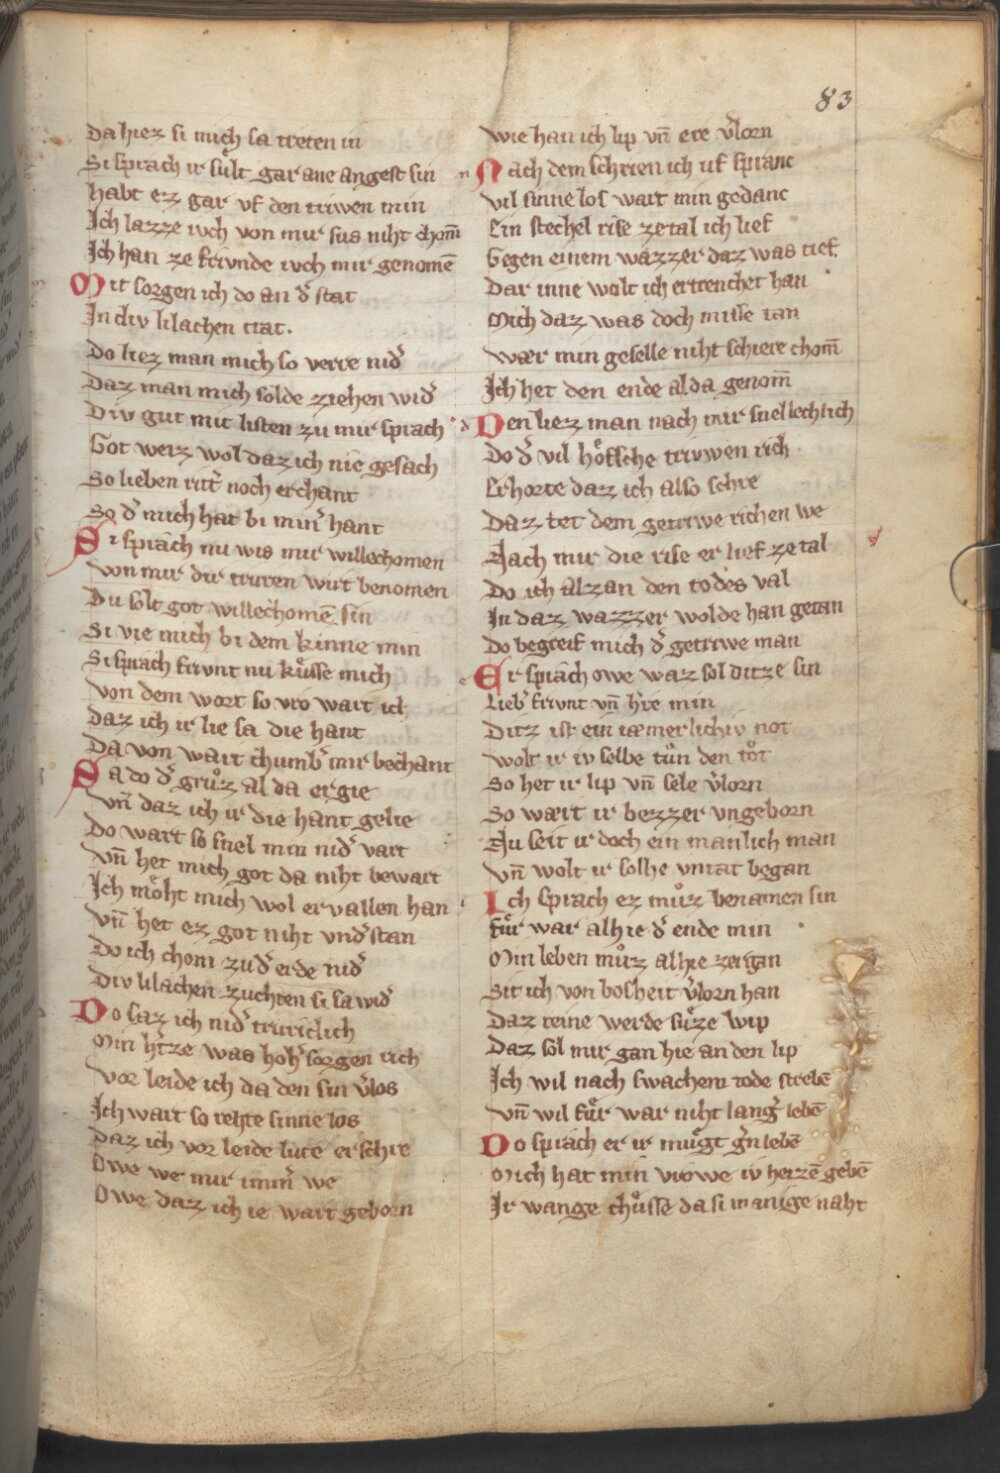 83
Da hiez si mich sa treten in
Si sprach ir sult gar ane angest sin
Habt ez gar vf den triwen min
Ich lazze iuch von mir sus niht chom̄
Ich han ze frivnde iuch mir genomē
Mit sorgen ich do an d̓ stat
In div lilachen trat.
Do liez man mich so verre nid̓
Daz man mich solde ziehen wid̓
Div gut mit listen zu mir sprach
Got weiz wol daz ich nie gesach
So lieben rit̓ noch erchant
So d̓ mich hat bi min̓ hant
Si sprach nu wis mir willechomen
von mir dir truren wirt benomen
Du solt got willechomē sin
Si vie mich bi dem kinne min
Si sprach frivnt nu kuͤsse mich
von dem wort so vro wart ich
Daz ich ir lie sa die hant
Da von wart chumb̓ mir bechant
Sa do d̓ gruͦz al da ergie
vn̄ daz ich ir die hant gelie
Do wart so snel min nid̓ vart
vn̄ het mich got da niht bewart
Ich moͤht mich wol ervallen han
vn̄ het ez got niht vnd̓stan
Do ich chom zu d̓ erde nid̓
Div lilachen zuchten si sa wid̓
Do saz ich nid̓ truriclich
Min h̓tze was hoh̓ sorgen rich
vor leide ich da den sin v̓los
Ich wart so rehte sinne los
Daz ich vor leide lute erschre
Owe we mir im̄ we
Owe daz ich ie wart geborn
wie han ich lip vn̄ ere v̓lorn
Nach dem schrien ich uf spranc
vil sinne los wart min gedanc
Ein stechel rise ze tal ich lief
Gegen einem wazzer daz was tief
Dar inne wolt ich ertrenchet han
Mich daz was doch misse tan
wær min geselle niht schiere chom̄
Ich het den ende alda genom̄
Den liez man nach mir snellechlich
Do d̓ vil hoͤfsche triwen rich
Erhorte daz ich also schre
Daz tet dem getriwe richen we
Nach mir die rise er lief ze tal
Do ich alzan den todes val
In daz wazzer wolde han getan
Do begreif mich d̓ getriwe man
Er sprach owe waz sol ditze sin
Lieb̓ frivnt vn̄ h̓re min
Ditz ist ein iæmerlichiv not
wolt ir iv selbe tuͦn den toͤt
So het ir lip vn̄ sele v̓lorn
So wært ir bezzer vngeborn
Nu seit ir doch ein manlich man
vn̄ wolt ir solhe vntat began
Ich sprach ez muͦz benamen sin
fuͤr war alhie d̓ ende min
Min leben muͦz alhie zergan
Sit ich von bosheit v̓lorn han
Daz reine werde suͤze wip
Daz sol mir gan hie an den lip
Ich wil nach swachem tode strebē
vn̄ wil fuͤr war niht lang̓ lebē
Do sprach er ir muͤgt g̓n lebē
Mich hat min vrowe iv herzē gebē
Ir wange chuͤsse da si manige naht